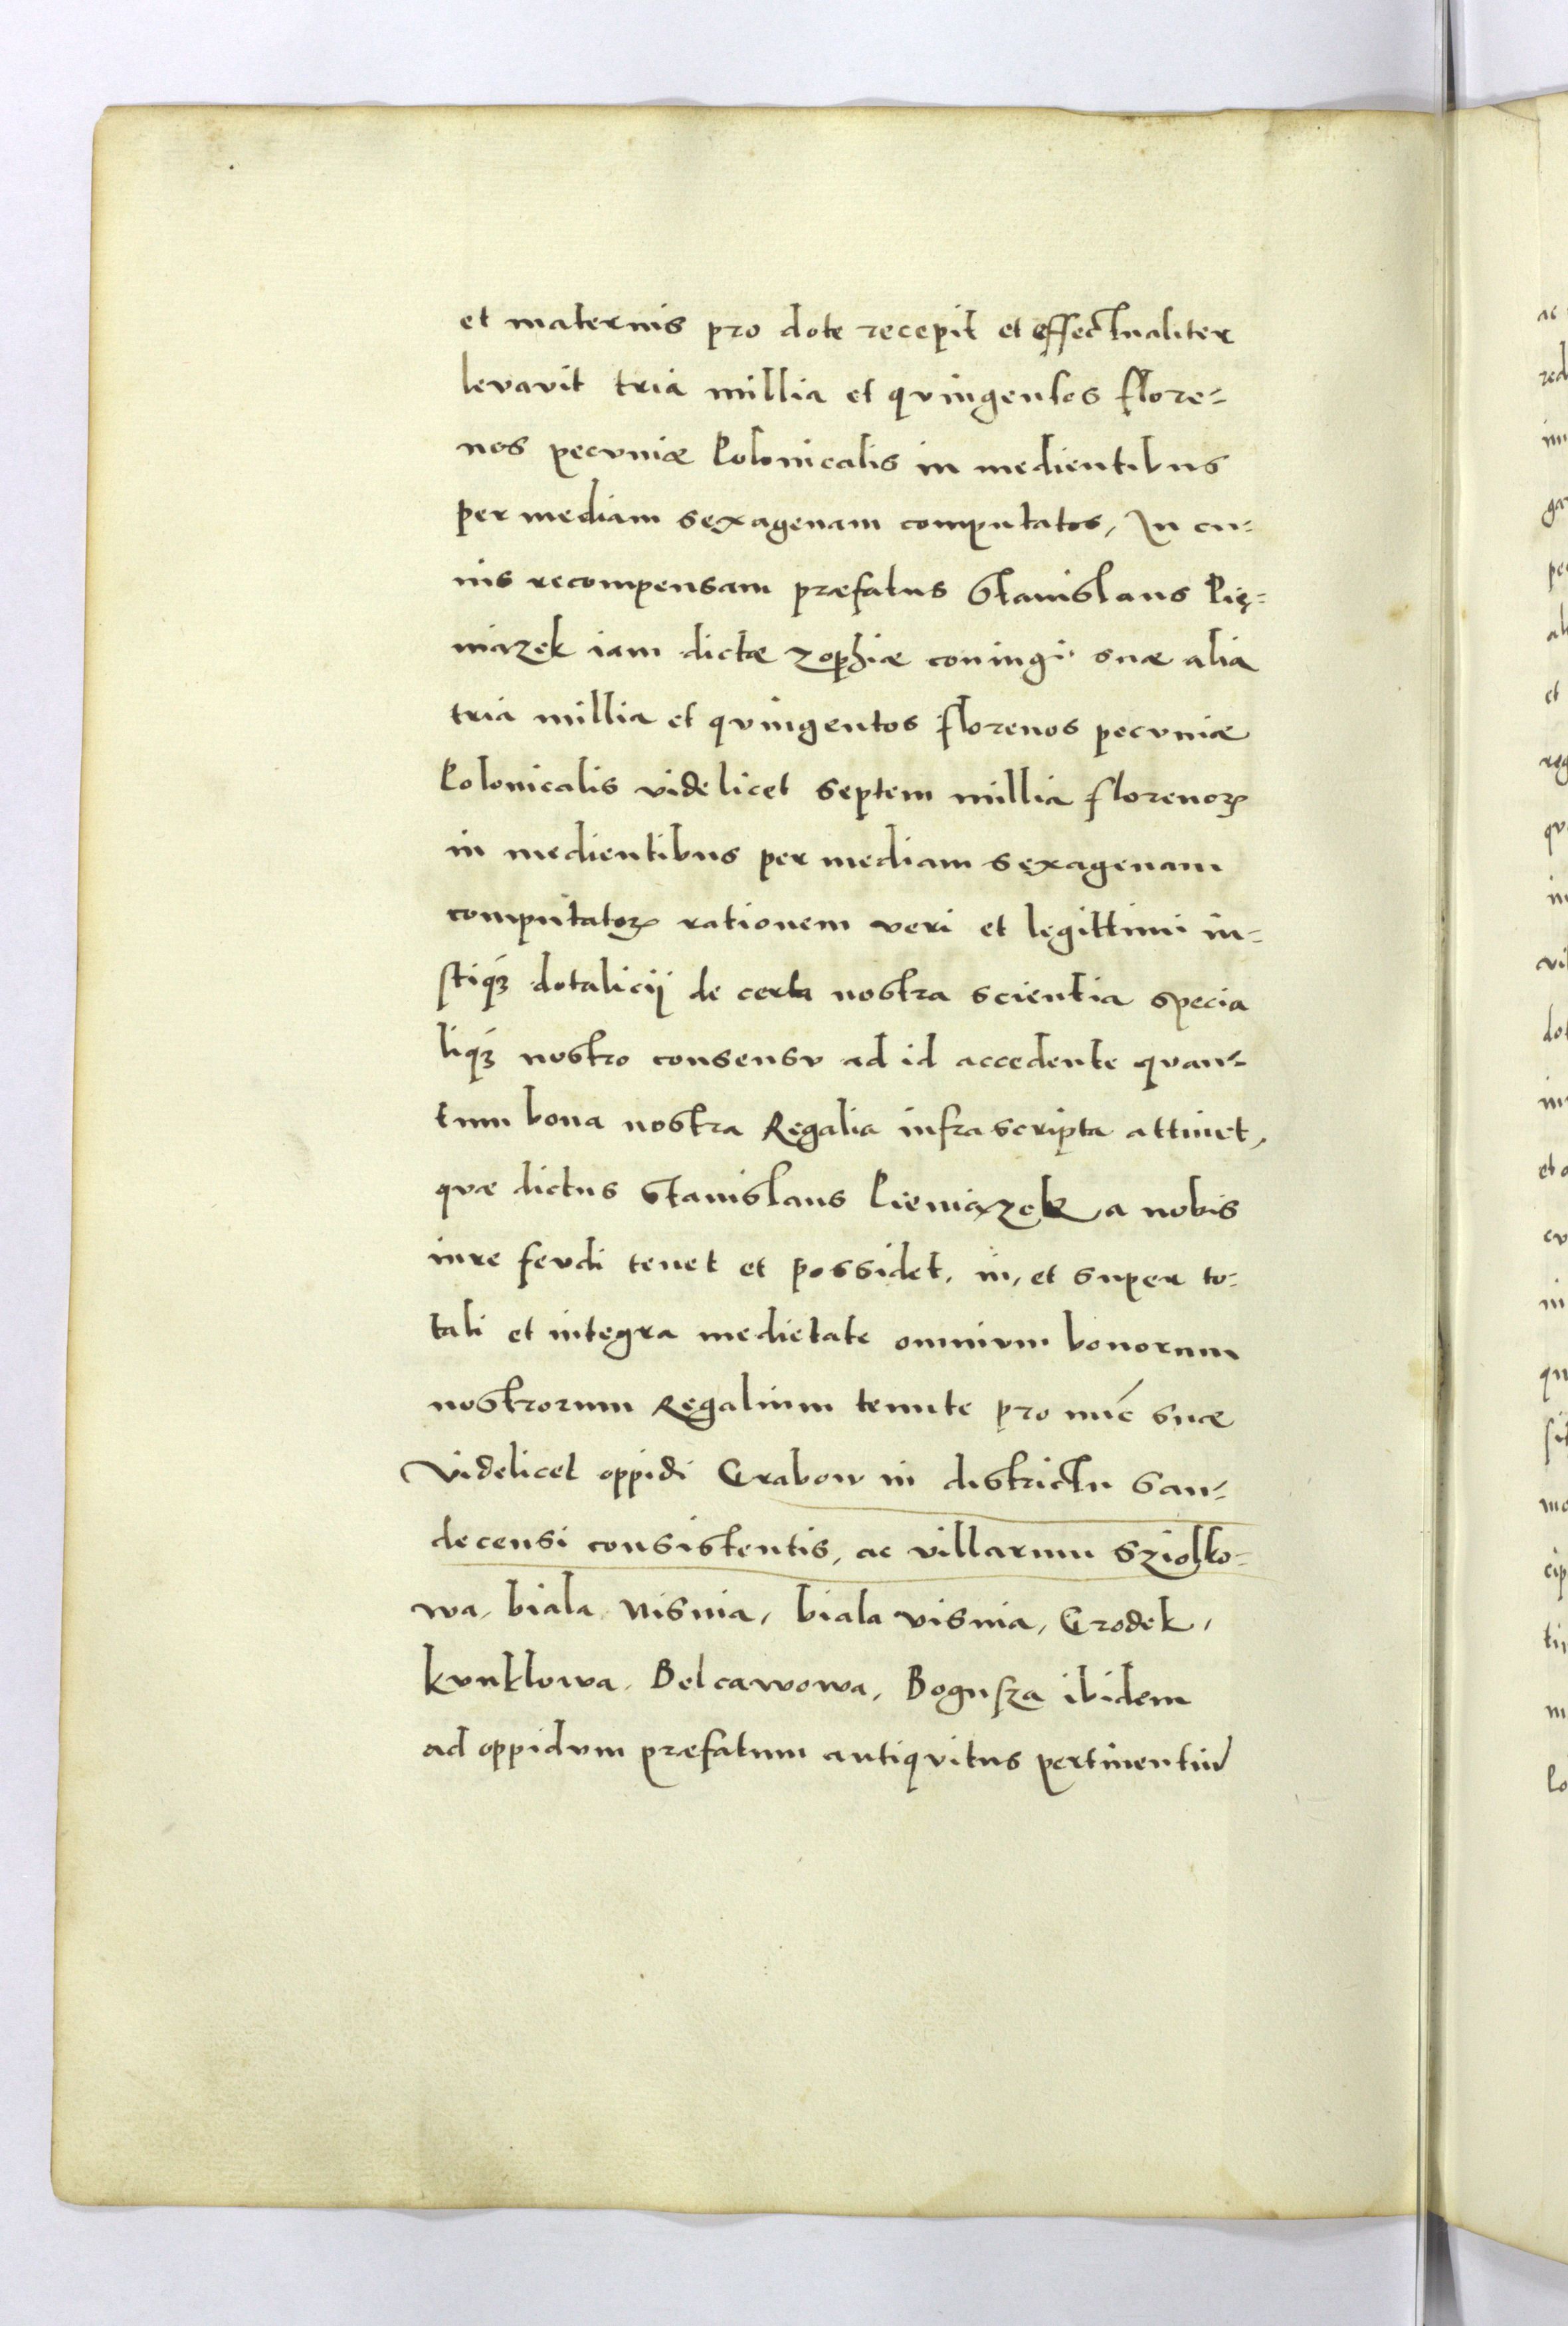 et maternis pro dote recepit et effectualiter
levavit tria millia et qvingentos flore-
nos pecvniæ Polonicalis in medientibvs
per mediam sexagenam computatos, In cu-
ius recompensam præfatus Stanislaus Pię-
niazek iam dictæ zophiæ coniugi suæ alia
tria millia et qvingentos florenos pecvniæ
Polonicalis videlicet septem millia florenoꝝ
in medientibvs per mediam sexagenam
computatoꝝ rationem veri et legittimi iu-
stiqꝫ dotalicij de certa nostra scientia specia
liqꝫ nostro consensv ad id accedente qvan-
tum bona nostra Regalia infra scripta attinet,
qvæ dictus Stanislaus Pieniazek a nobis
iure fevdi tenet et possidet, in, et super to-
tali et integra medietate omnivm bonorum
nostrorum Regalium tenute pro nūc suæ
Videlicet oppidi Grabow in districtu San-
decensi consistentis, ac villarum Sziolko-
wa, biala nisnia, biala visnia, Grodek,
kvnklowa, Belcawowa, Bogusza ibidem
ad oppidvm præfatum antiqvitus pertinentiū